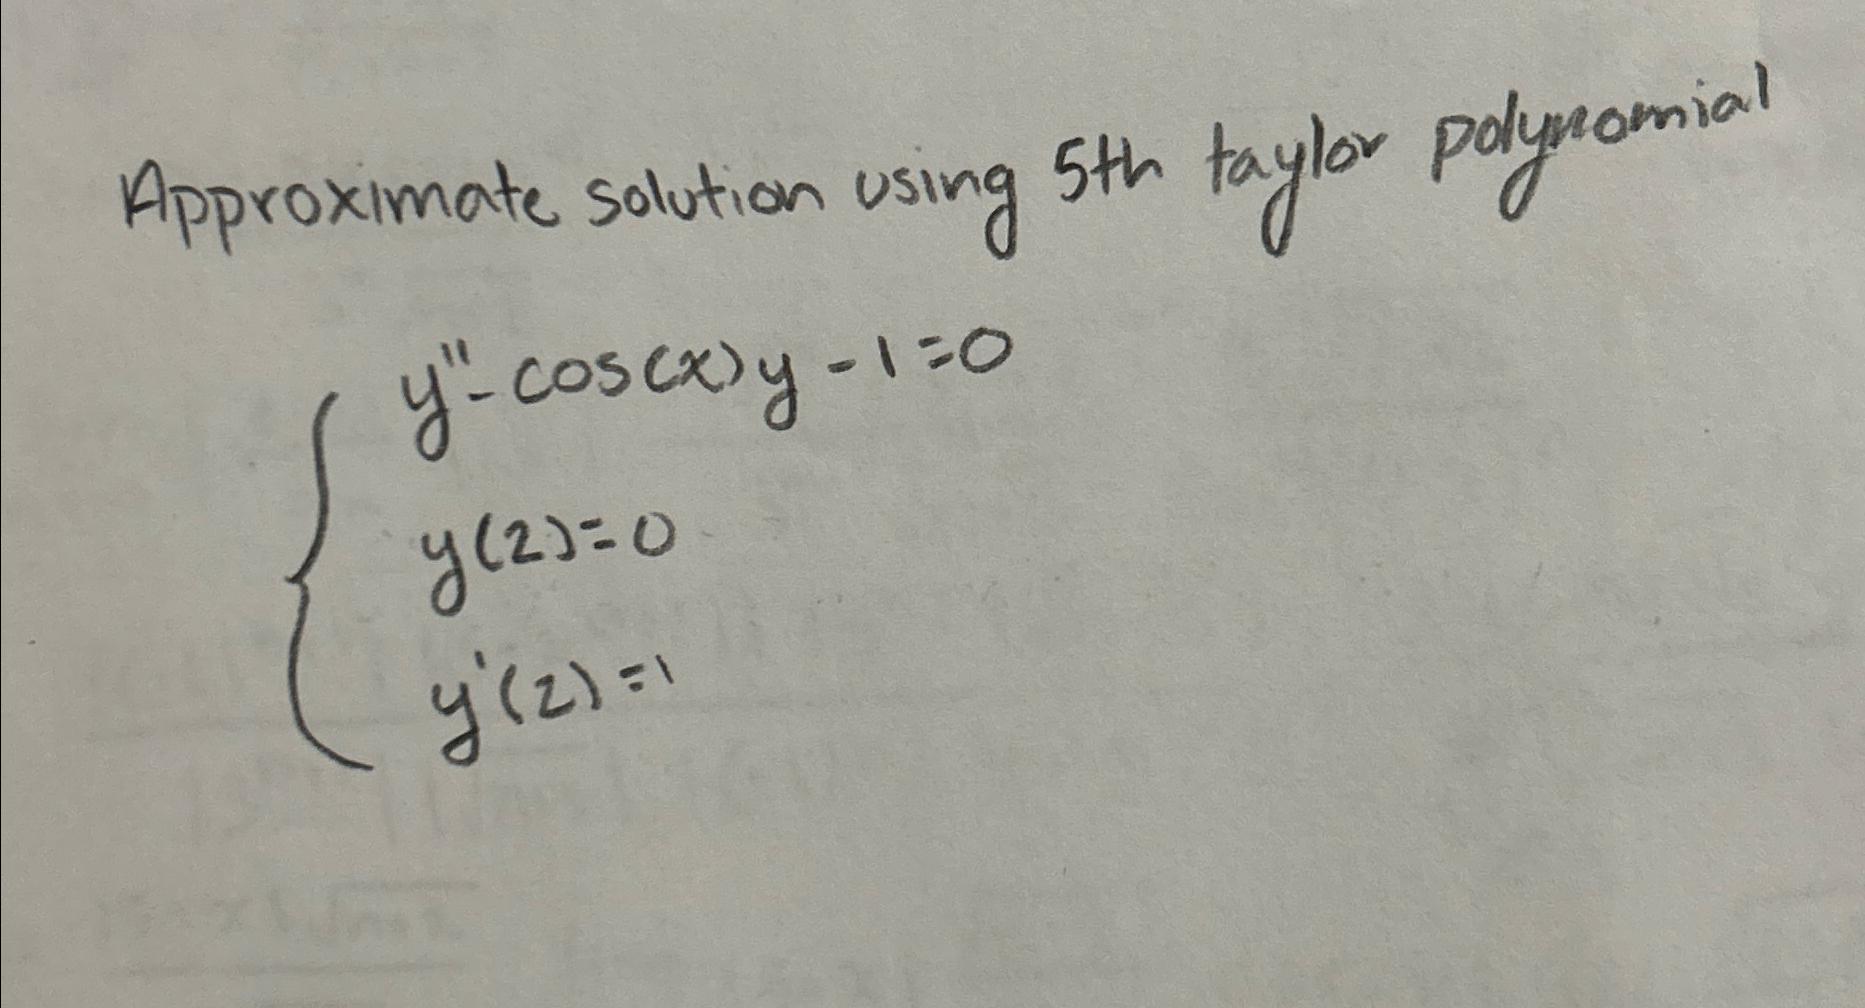 Approximate solution using 5th taylor polynomial
y"- cos(x)y - 1 = 0
y(2) = 0
y'(2) = 1